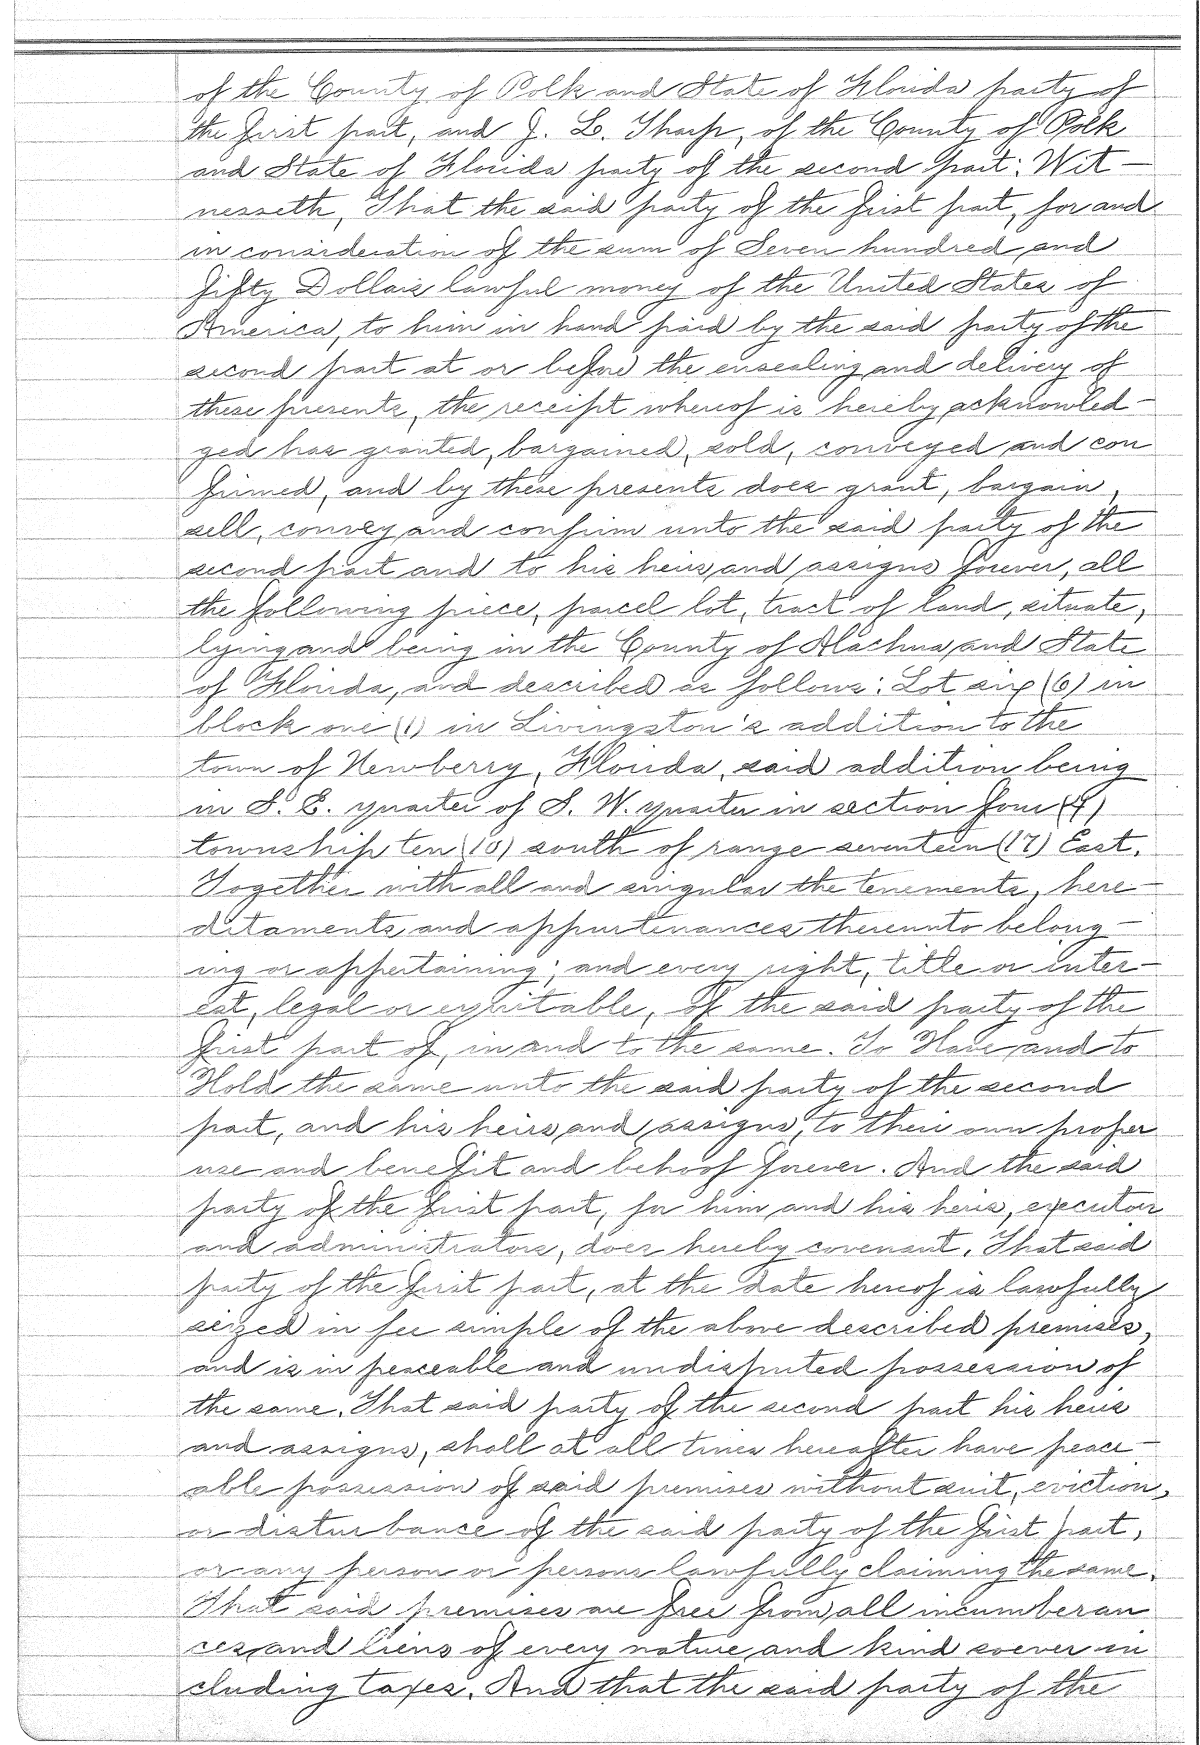 of the County of Polk and State of Florida party of
the first part, and J. L. Tharp, of the County of Polk
and State of Florida party of the second part: Wit-
nesseth, That the said party of the first part, for and
in consideration of the sum of Seven hundred and
fifty Dollars lawful money of the United States of
America, to him in hand paid by the said party of the
second part at or before the ensealing and delivery of
these presents, the receipt whereof is hereby acknowled-
ged has granted, bargained, sold, conveyed and con
firmed, and by these presents does grant, bargain,
sell, convey and confirm unto the said party of the
second part and to his heirs and assigns forever, all
the following piece, parcel lot, tract of land, situate,
lying and being in the County of Alachua and State
of Florida, and described as follows: Lot six (6) in
block one (1) in Livingston's addition to the
town of Newberry, Florida, said addition being
in S. E. quarter of S. W. quarter in section four (4)
township ten (10) south of range seventeen (17) East.
Together with all and singular the tenements, here-
ditaments and appurtenances thereunto belong-
ing or appertaining; and every right, title or inter-
est, legal or equitable, of the said party of the
first part of, in and to the same. To Have and to
Hold the same unto the said party of the second
part, and his heirs and assigns, to their own proper
use and benefit and behoof forever. And the said
party of the first part, for him and his heirs, executors
and administrators, does hereby covenant. That said
party of the first part, at the date hereof is lawfully
seized in fee simple of the above described premises,
and is in peaceable and undisputed possession of
the same. That said party of the second part his heirs
and assigns, shall at all times hereafter have peace-
able possession of said premises without suit, eviction,
or disturbance of the said party of the first part,
or any person or persons lawfully claiming the same.
That said premises are free from all incumberan
ces and liens of every nature and kind soever in
cluding taxes. And that the said party of the